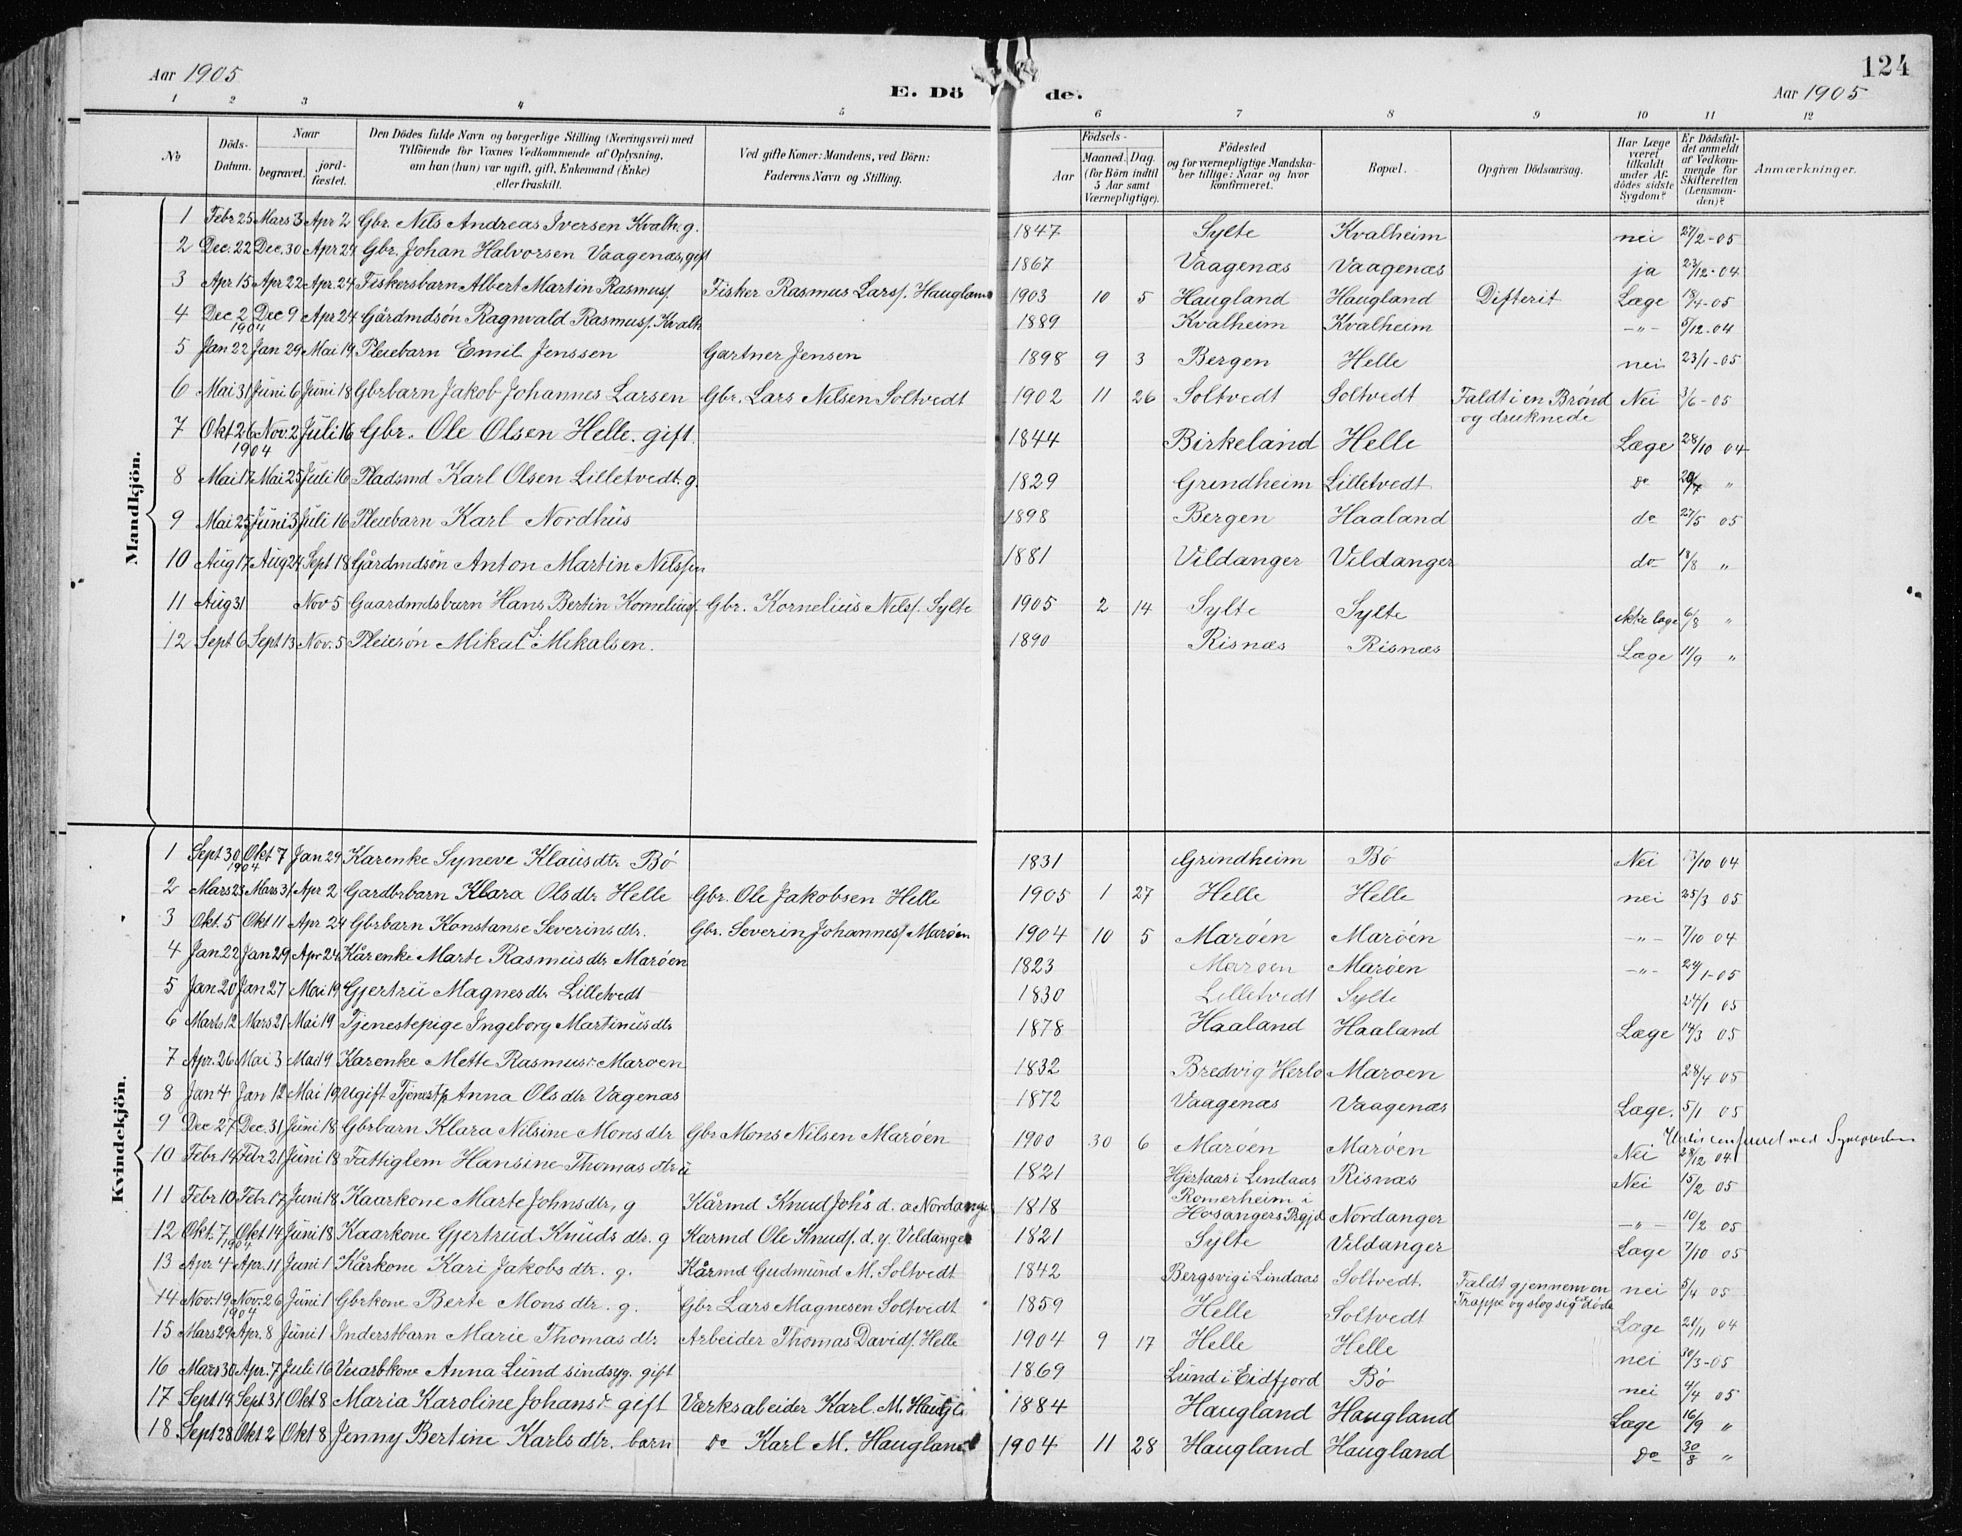 124
Aar 1905
E. Dö de.
Aar 1905
1 2 3 4 5 6 7 8 9 10 11 12
№
Döds-Datum.
Naar
begravet.
jord-fæstet.
Den Dödes fulde Navn og borgerlige Stilling (Næringsvei) med
Tilföiende for Voxnes Vedkommende af Oplysning,
om han (hun) var ugift, gift, Enkemand (Enke)
eller fraskilt.
Ved gifte Koner: Mandens, ved Börn:
Faderens Navn og Stilling.
Födsels-
Aar
Maaned. Dag.
(for Börn indtil
5 Aar samt
Værnepligtige).
Födested
og for værnepligtige Mandska-
ber tillige: Naar og hvor
konfirmeret.
Bopæl.
Opgiven Dödsaarsag.
Har Læge
været
tilkaldt
under Af-
dödes sidste
Sygdom?
Er Dödsfal-
det anmeldt
af Vedkom-
mende for
Skifteretten
(Lensman-
den)?
Anmærkninger.
Mandkjön.
1 Febr 25 Mars 3 Apr 2 Gbr. Nils Andreas Iversen Kvalh. g. 1847 Sylte Kvalheim nei 27/2-05
2 Dec. 22 Dec. 30 Apr 24 Gbr. Johan Halvorsen Vaagenæs, gift 1867 Vaagenæs Vaagenæs ja 23/12-04
3 Apr 15 Apr 22 Apr. 24 Fiskersbarn Albert Martin Rasmuss. Fisker Rasmus Larss. Haugland 1903 10 5 Haugland Haugland Difterit Læge 18/4-05
4 Dec 2 1904 Dec 9 Apr 24 Gårdmdsøn Ragnvald Rasmuss. Kvalh 1889 Kvalheim Kvalheim -"- 5/12-04
5 Jan 22 Jan 29 Mai 19 Pleiebarn Emil Jenssen Gartner Jensen 1898 9 3 Bergen Helle nei 23/1-05
6 Mai 31 Juni 6 Juni 18 Gbrbarn Jakob Johannes Larsen Gbr. Lars Nilsen Soltvedt 1902 11 26 Soltvedt Soltvedt Faldt i en Brønd og druknede Nei 3/6-05
7 Okt 26 1904 Nov. 2 Juli 16 Gbr. Ole Olsen Helle. gift. 1844 Birkeland Helle Læge 28/10 04
8 Mai 17 Mai 25 Juli 16 Pladsmd Karl Olsen Lilletvedt g. 1829 Grendheim Lilletvedt do "
9 Mai 25 Juni 3 Juli 16 Pleiebarn Karl Nordhus 1898 Bergen Haaland do 27/5 05
10 Aug 17 Aug 24 Sept 18 Gårdmdsøn Anton Martin Nilssen 1881 Vildanger Vildanger do 18/8 "
11 Aug 31 Nov 5 Gaardmdsbarn Hans Bertin Korneliuss. Gbr. Kornelius Nilss. Sylte 1905 2 14 Sylte Sylte ikke læge 6/8 "
12 Sept 6 Sept 13 Nov. 5 Pleiesøn Mikal S. Mikalsen. 1890 Risnæs Risnæs Læge 11/9 "
Kvindekjön.
1 Sept 30 1904 Okt 7 Jan 29 Karenke Syneve Klausdtr Bø 1831 Grindheim Bø Nei /10 04
2 Mars 25 Mars 31 Apr 2 Gardbrbarn Klara Olsdtr Helle Gbr. Ole Jakobsen Helle 1905 1 27 Helle Helle nei 25/3 05
3 Okt. 5 Okt 11 Apr 24 Gbrbarn Konstanse Severinsdtr. Gbr. Severin Johanness. Marøen 1904 10 5 Marøen Marøen -"- 7/10 04
4 Jan 22 Jan 29 Apr 24 Kårenke Marte Rasmusdtr Marøen 1823 Marøen Marøen -"- 24/1-05
5 Jan 20 Jan 27 Mai 19 Gjertru Magnesdtr Lilletvedt 1830 Lilletvedt Sylte 24/1 05
6 Marts 12 Mars 21 Mai 19 Tjenestepige Ingeborg Martinusdtr 1878 Haaland Haaland Læge 14/3 05
7 Apr. 26 Mai 3 Mai 19 Karenke Mette Rasmusdr Marøen 1832 Bredvig Herlø Marøen 28/4 05
8 Jan 4 Jan 12 Mai 19 Ugift Tjenestp Anna Olsdtr Vagenæs 1872 Vaagenæs Vaagenæs Læge. 5/1 05
9 Dec 27 Dec. 31 Juni 18 Gbrbarn Klara Nilsine Monsdtr Gbr Mons Nilsen Marøen 1900 30 6 Marøen Marøen Nei 28/12 04 med
10 Febr 14 Febr 21 Juni 18 Fattiglem Hansine Thomasdtr u 1821 Hjertaas i Lindaas Risnæs Nei 15/2 05
11 Febr 10 Febr 17 Juni 18 Kaarkone Marte Johnsdtr, g Kårmd Knud Joh's d. æ Nordanger 1818 Romerheim i Hosangers Prgjd Nordanger -"- 10/2 05
12 Okt. 7 1904 Okt 14 Juni 18 Kaarkone Gjertrud Knudsdtr. g Karmd Ole Knuds. d. y. Vildanger 1821 Sylte Vildanger Læge 7/10 05
13 Apr 4 Apr. 11 Juni 1 Kårkone Kari Jakobsdtr. g. Kårmd Gudmund M. Soltvedt 1842 Bergsvig i Lindaas Soltvedt. Faldt gjennem en Trappe og slog sig tildøde nei 5/4 05
14 Nov. 19 1904 Nov. 26 Juni 1 Gbrkone Berte Monsdtr. g. Gbr Lars Magnesen Soltvedt 1859 Helle Soltvedt Læge 21/11 04
15 Mars 29 Apr. 8 Juni 1 Inderstbarn Marie Thomasdtr. Arbeider Thomas Davids. Helle 1904 9 17 Helle Helle nei 30/3-05
16 Mars 30 Apr. 7 Juli 16 Anna Lund sindsyg. gift 1869 Lund i Eidfjord Bø nei 4/4 05
17 Sept 14 Sept 31 Okt 8 Maria Karoline Johansdr gift Værksabeider Karl. M. Haugl. 1884 Haugland Haugland Læge 16/9 "
18 Sept 28 Okt 2 Okt 8 Jenny Bertine Karlsdtr. barn Do Karl M. Haugland 1904 11 28 Haugland Haugland Do 30/8 "